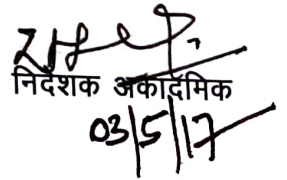 निदेशक अकादमिक
03/5/17